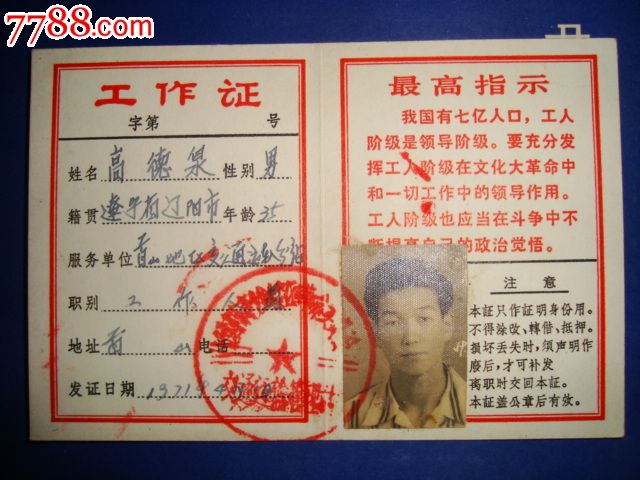 7788.com
工作证
字第 号
姓名 高德泉 性别 男
籍贯 辽宁省辽阳市 年龄 35
服务单位
职别 工作人员
地址 电话
发证日期
最高指示
我国有七亿人口，工人
阶级是领导阶级。要充分发
挥工人阶级在文化大革命中
和一切工作中的领导作用。
工人阶级也应当在斗争中不
断提高自己的政治觉悟。
注意
本证只作証明身份用。
不得涂改、轉借、抵押。
损坏丢失时，须声明作
廢后，才可补发
离职时交回本証。
本証盖公章后有效。